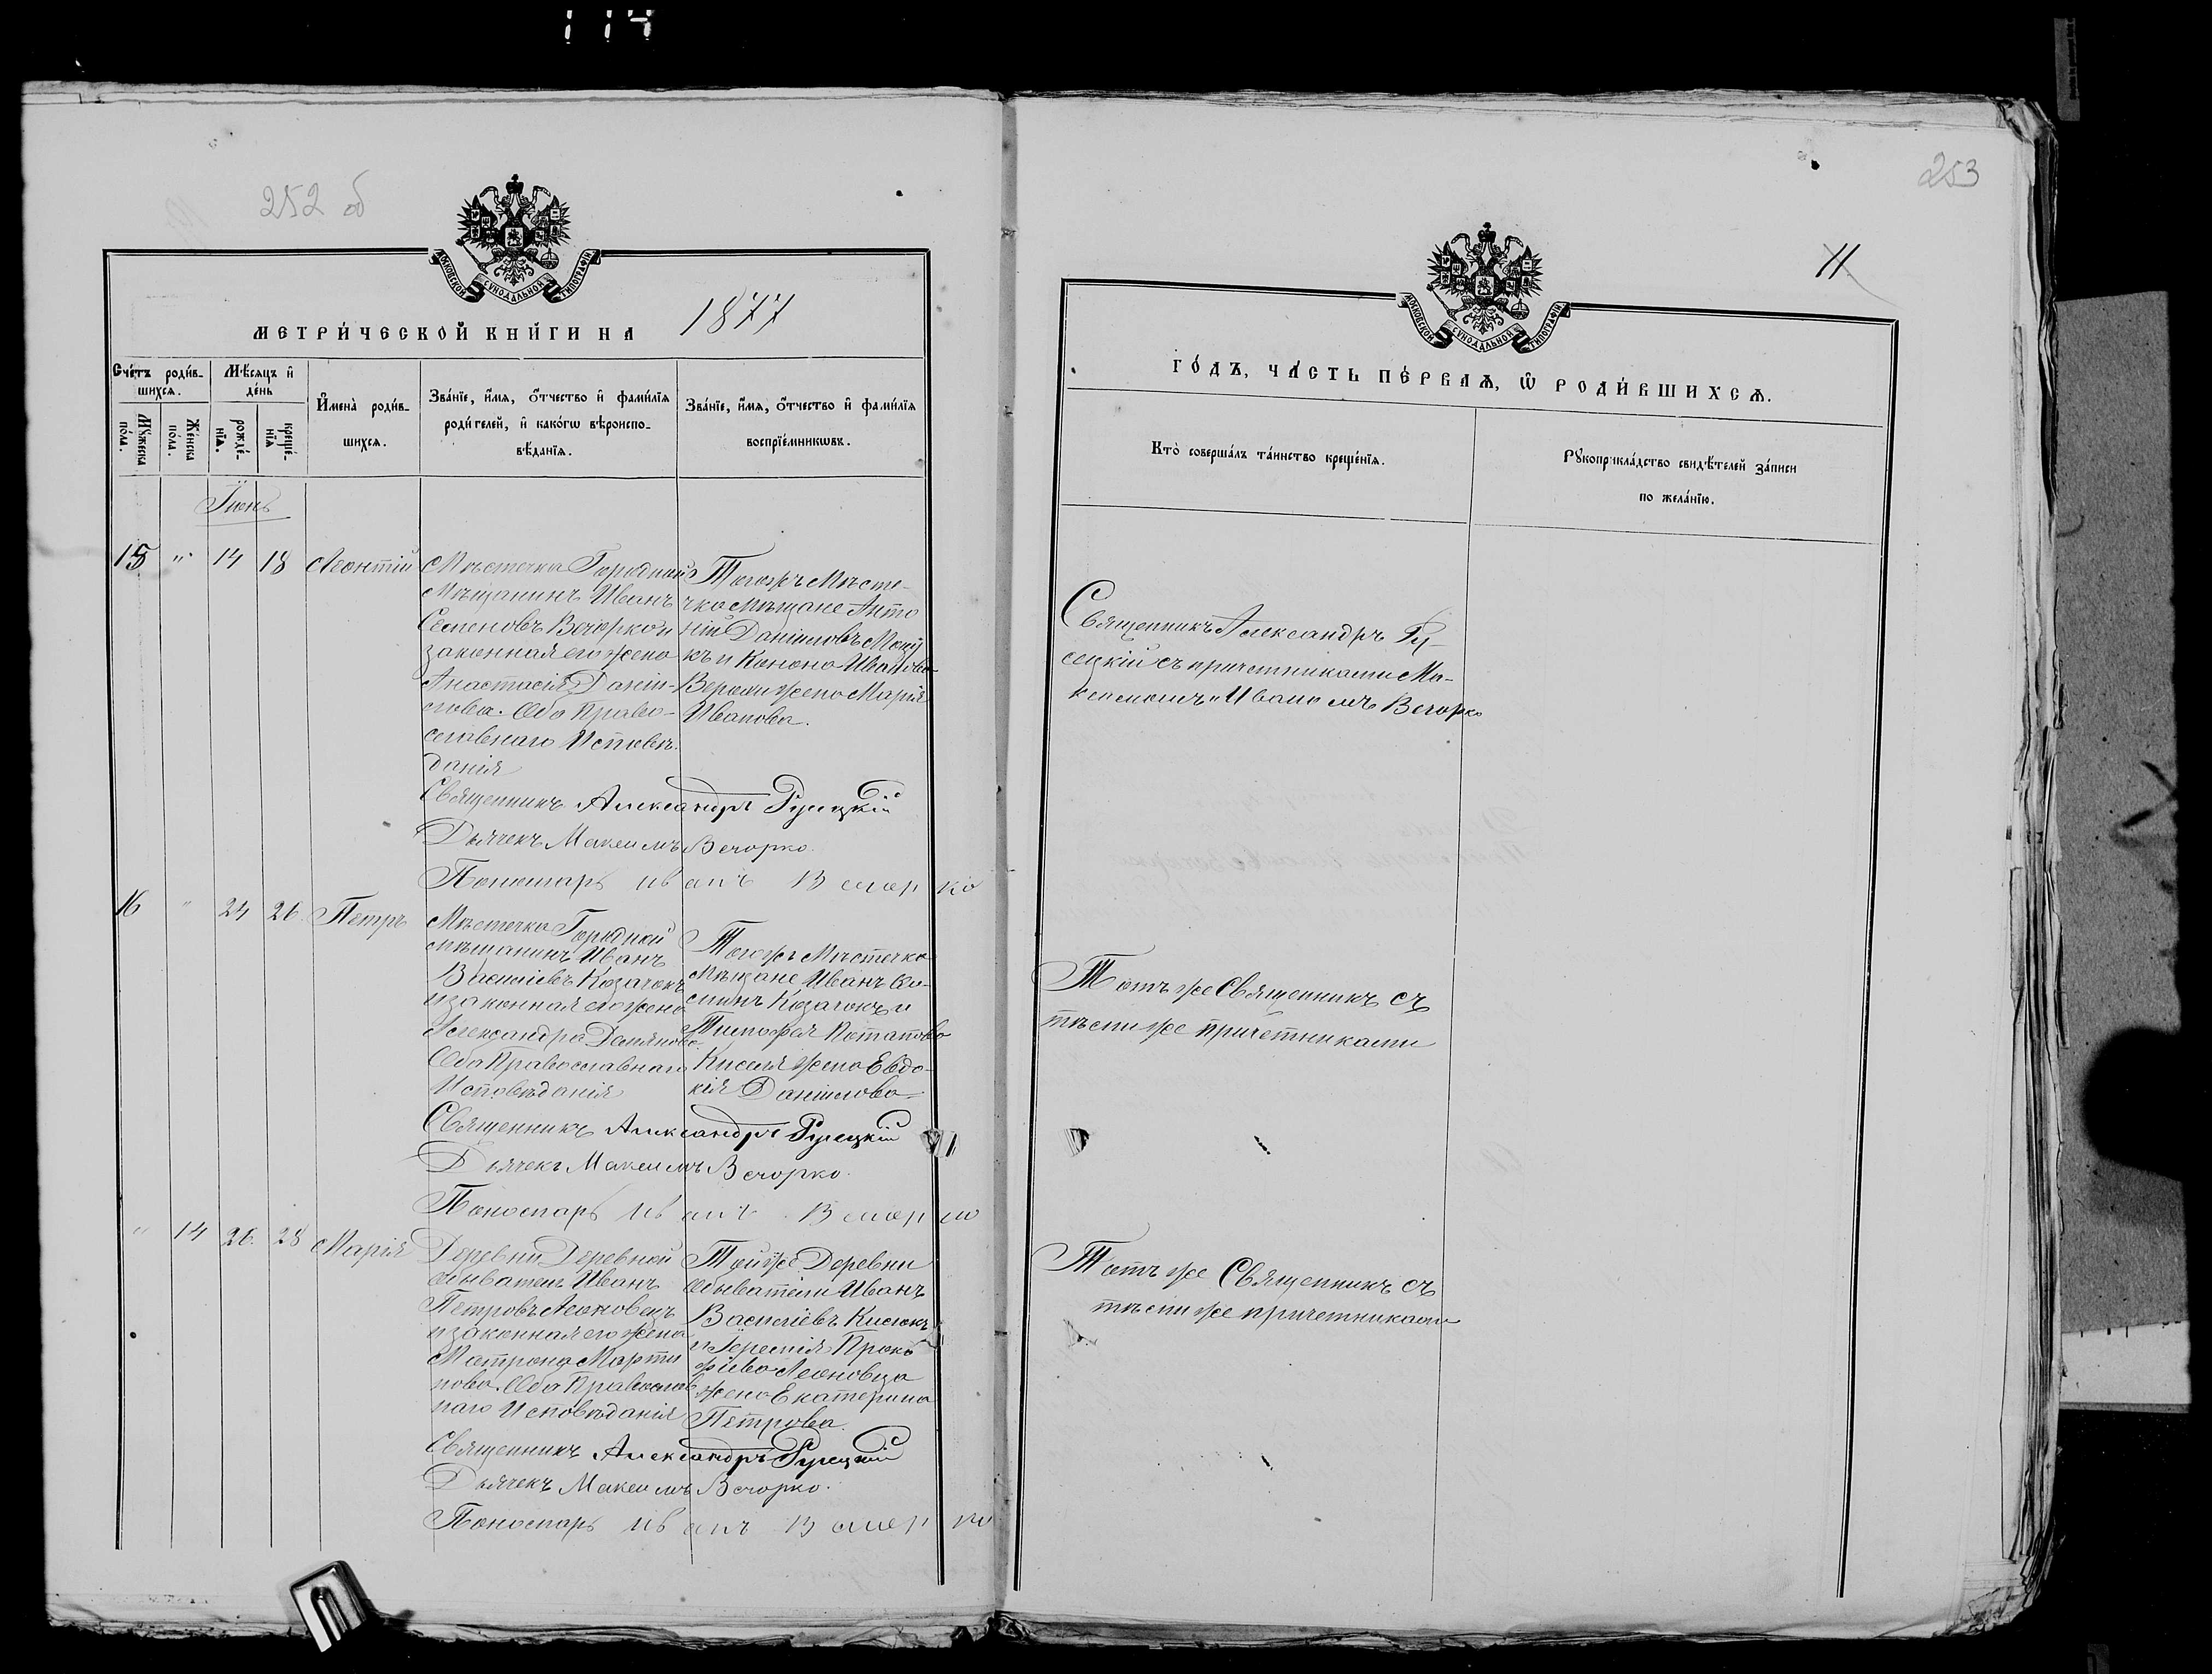 114
252 об
МОСКОВСКОЙ СѴНОДАЛЬНОЙ ТИПОГРАФІИ
МЕТРИ́ЧЕСКОЙ КНИ́ГИ НА 1877
Сче́тъ роди́в-
шихсѧ.
Мѣ́сѧцъ и҆
де́нь
Мꙋ́жеска по́ла.
Же́нска по́ла.
рожде́-нїѧ.
креще́-нїѧ
И҆мена̀ роди́в-
шихсѧ.
Зва́нїе, и҆́мѧ, ѻ҆́тчество и҆ фами́лїѧ
роди́телей, и҆ како́гѡ вѣроиспо-
вѣ́данїѧ.
Зва́нїе, и҆́мѧ, ѻ҆́тчество и҆ фами́лїѧ
воспрїе́мникѡвъ.
Іюнь
15 " 14 18 Леонтій
Мѣстечка Городной
Мѣщанинъ Иванъ
Семеновъ Вечорко и
законная его жена
Анастасія Даніи-
лова. Оба Право-
славнаго Исповѣ-
данія
Тогожъ Мѣсте-
чка Мѣщане Анто
ній Даніиловъ
къ и Конона Иванова
жена Марія
Иванова.
Священникъ Александръ Русецкій
Дьячекъ Максимъ Вечорко.
Пономарь Иванъ Вечорко
16 " 24 26 Петръ
Мѣстечка Городной
мѣщанинъ Иванъ
Васильевъ Козачокъ
и законная его жена
Александра Демянова
Оба Православнаго
Исповѣданія
Тогожъ Мѣстечка
Мѣщане Иванъ
Козачокъ и
Тимофея Потапова
Киселя жена Евдо-
кія Даніилова
Священникъ Александръ Русецкій
Дьячекъ Максимъ Вечорко.
Пономарь Иванъ Вечорко
" 14 26. 28 Марія
Деревни Деревной
обыватель Иванъ
Петровъ Леоновецъ
и законная его жена
Матрона Марти
нова. Оба Православ
наго Исповѣданія
Тойже Деревни
Обыватели Иванъ
Васильевъ
и Іеремія Прокo
фіева Леоновца
жена Екатерина
Петрова.
Священникъ Александръ Русецкій
Дьячекъ Максимъ Вечорко.
Пономарь Иванъ Вечорко
253
11
МОСКОВСКОЙ СѴНОДАЛЬНОЙ ТИПОГРАФІИ
ГО́ДЪ, ЧА́СТЬ ПЕ́РВАѦ, Ѡ҆ РОДИ́ВШИХСѦ.
Кто̀ соверша́лъ та́инство креще́нїѧ.
Рꙋкоприкла́дство свидѣ́телей за́писи
по жела́нїю.
Священникъ Александръ Ру-
сецкій съ причетниками Ма-
ксимомъ и Иваномъ Вечорко
Тотъ же Священникъ съ
тѣми же причетниками
Тотъ же Священникъ съ
тѣми же причетниками